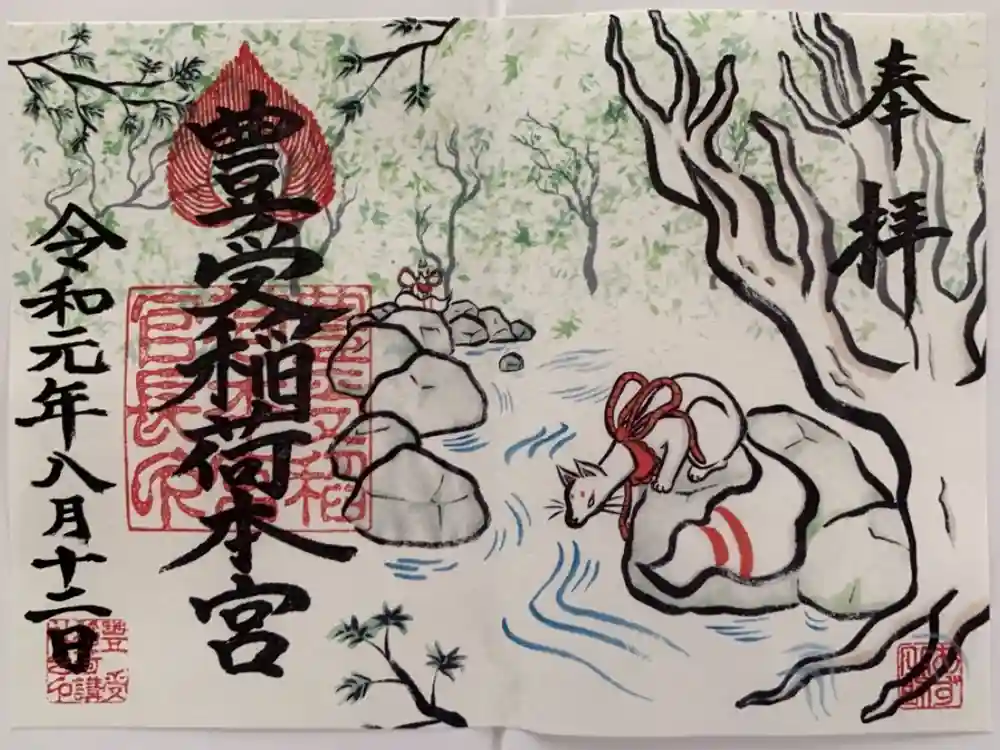 奉拝
豊受稲荷本宮
令和元年八月十二日